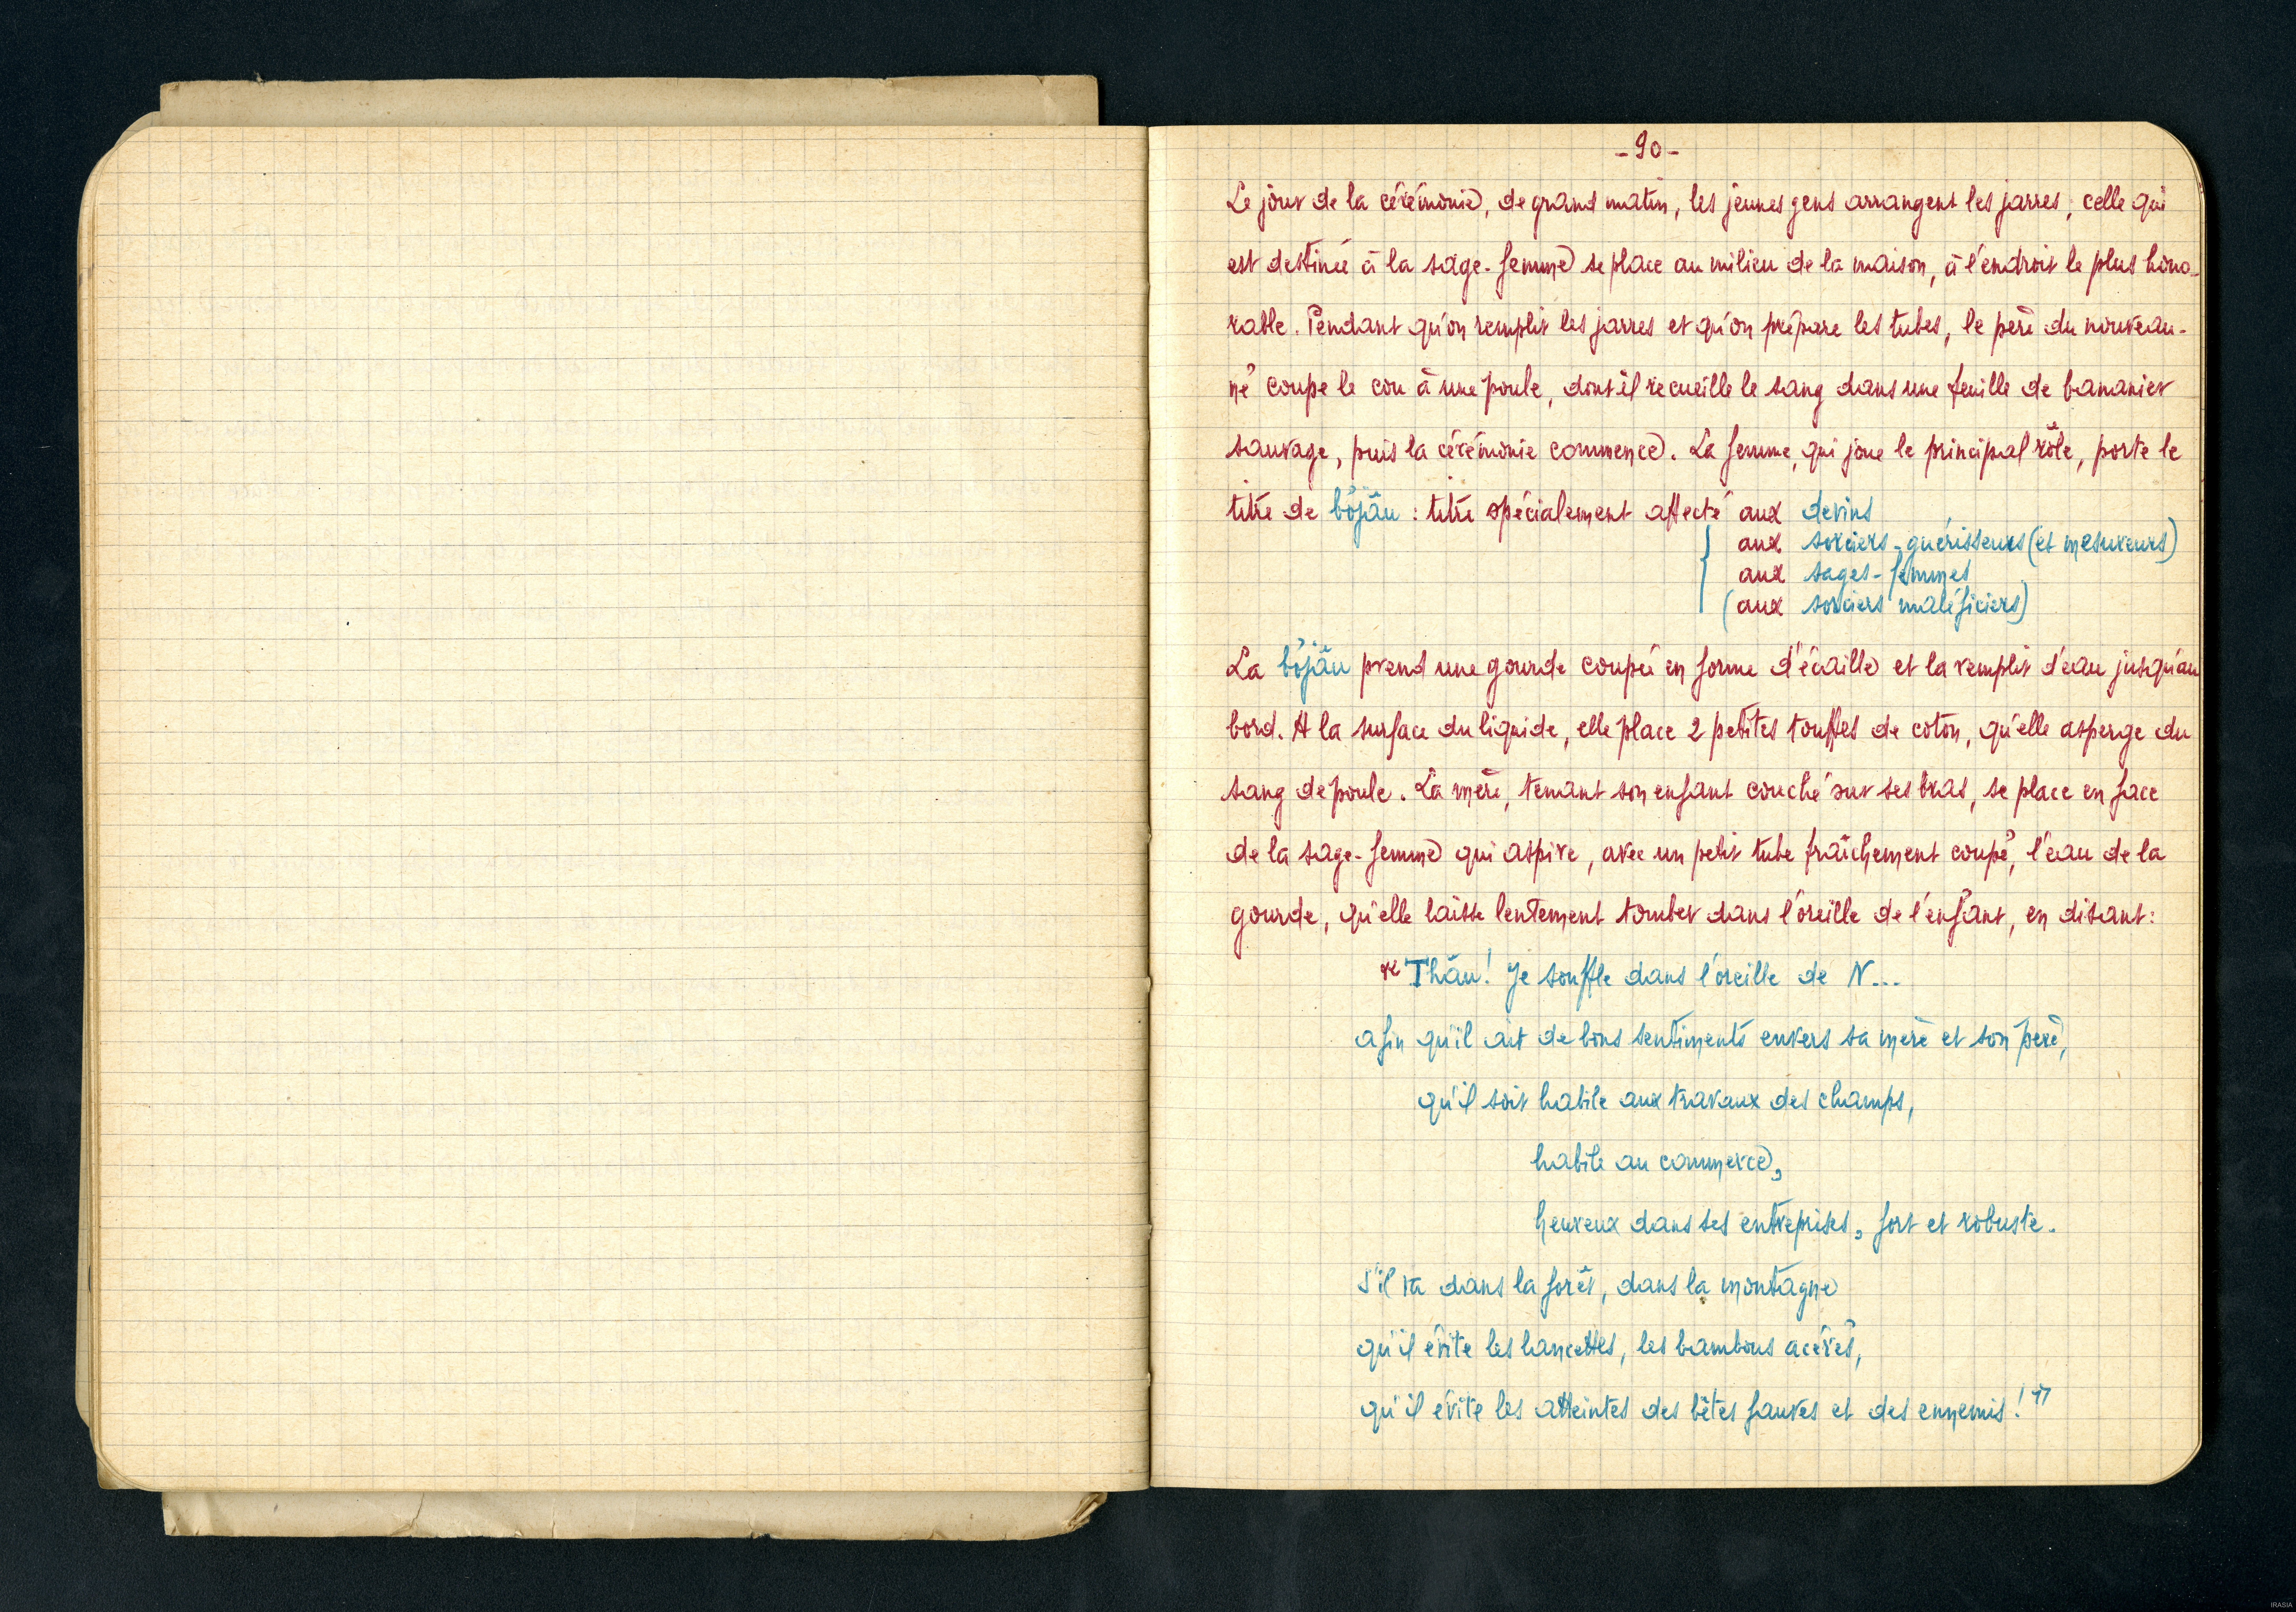 - 90 -
Le jour de la cérémonie, de grand matin, les jeunes gens arrangent les jarres ; celle qui
est destinée à la sage-femme se place au milieu de la maison, à l'endroit le plus hono-
rable. Pendant qu'on remplit les jarres et qu'on prépare les tubes, le père du nouveau-
né coupe le cou à une poule, dont il recueille le sang dans une feuille de bananier
sauvage, puis la cérémonie commence. La femme, qui joue le principal rôle, porte le
titre de bơ̆jâu : titre spécialement affecté aux devins
aux sorciers-guérisseurs (et mesureurs)
aux sages-femmes
(aux sorciers maléficiers)
La bơ̆jâu prend une gourde coupée en forme d'écaille et la remplit d'eau jusqu'au
bord. A la surface du liquide, elle place 2 petites touffes de coton, qu'elle asperge du
sang de poule. La mère, tenant son enfant couché sur ses bras, se place en face
de la sage-femme qui aspire, avec un petit tube fraîchement coupé, l'eau de la
gourde, qu'elle laisse lentement tomber dans l'oreille de l'enfant, en disant :
" Thâu! Je souffle dans l'oreille de N...
afin qu'il ait de bons sentiments envers sa mère et son père,
qu'il soit habile aux travaux des champs,
habile au commerce,
heureux dans ses entreprises, fort et robuste.
S'il va dans la forêt, dans la montagne
qu'il évite les lancettes, les bambous acérés,
qu'il évite les atteintes des bêtes fauves et des ennemis ! "
IRASIA